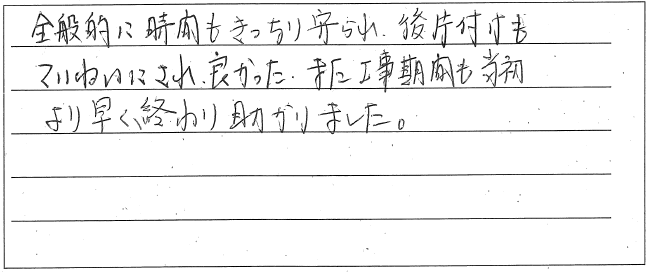 全般的に時間もきっちり守られ、後片付けも
ていねいにされ、良かった。また工事期間も当初
より早く、終わり助かりました。